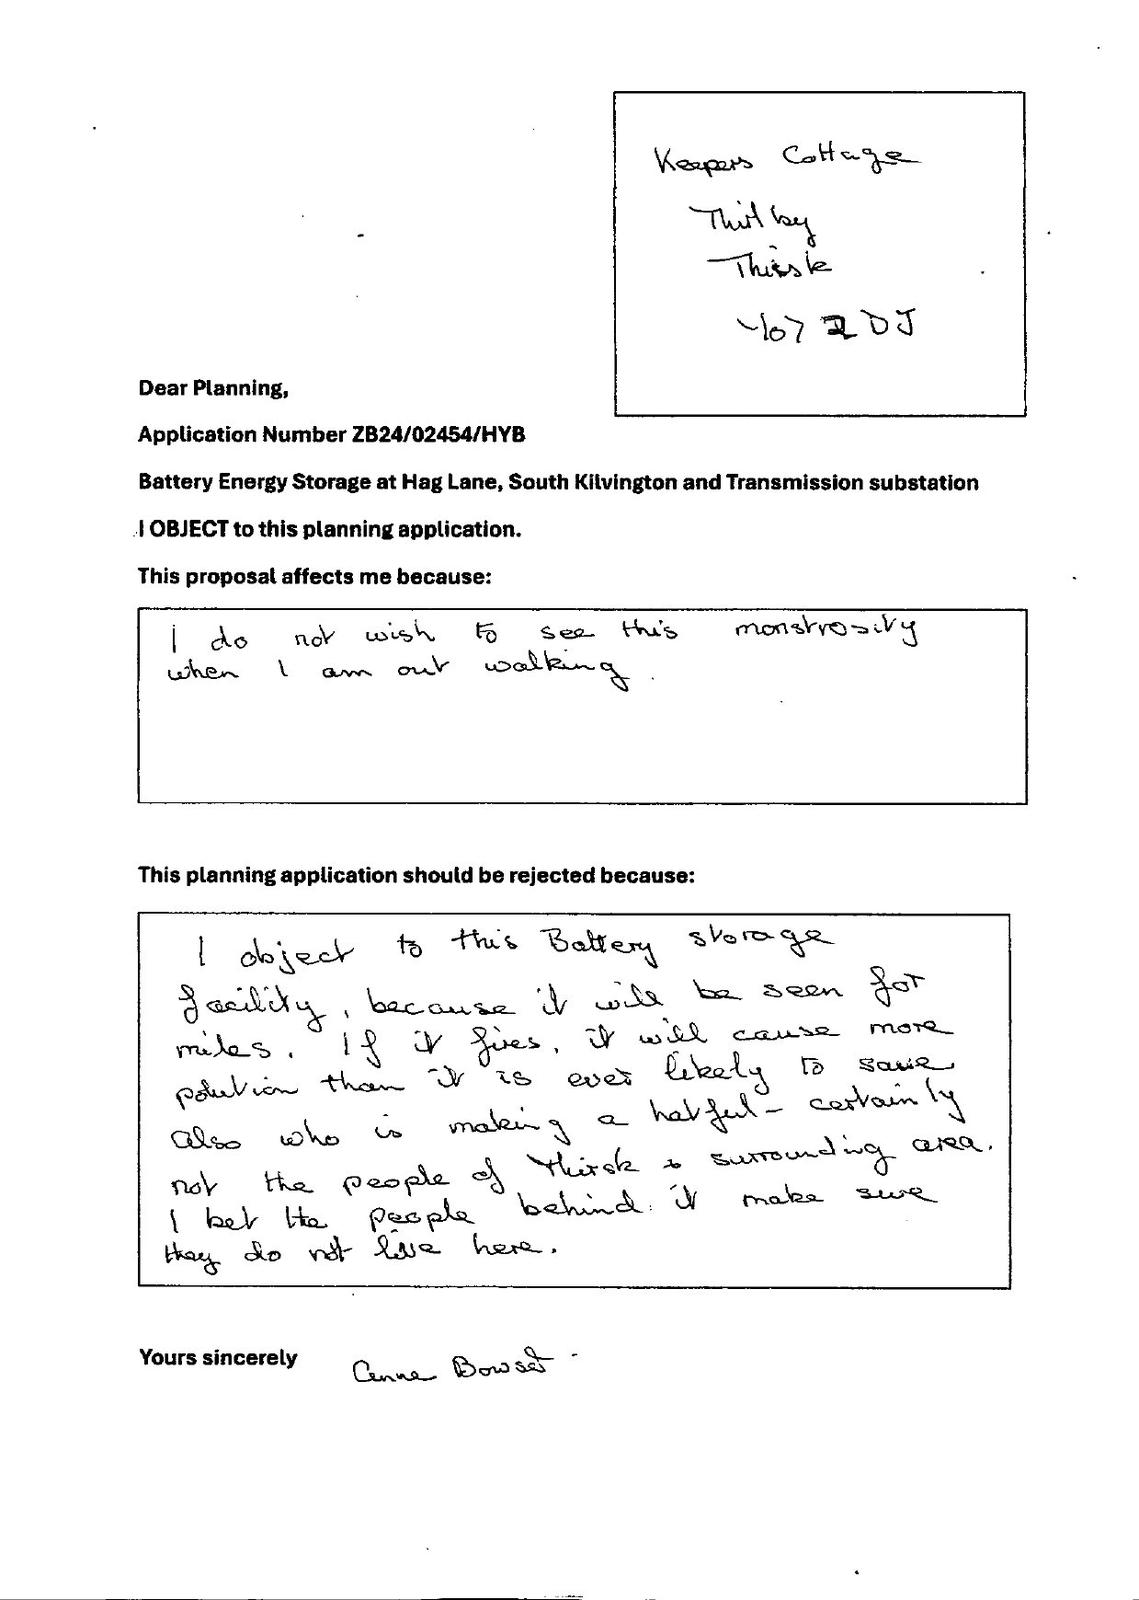 Keepers Cottage
Thirlby
Thirsk
YO7 2DJ
Dear Planning,
Application Number ZB24/02454/HYB
Battery Energy Storage at Hag Lane, South Kilvington and Transmission substation
I OBJECT to this planning application.
This proposal affects me because:
I do not wish to see this monstrosity
when I am out walking.
This planning application should be rejected because:
I object to this Battery storage
facility, because it will be seen for
miles. If it fires, it will cause more
polution than it is ever likely to save.
Also who is making a hatful - certainly
not the people of Thirsk & surrounding area.
I bet the people behind it make sure
they do not live here.
Yours sincerely
Anne